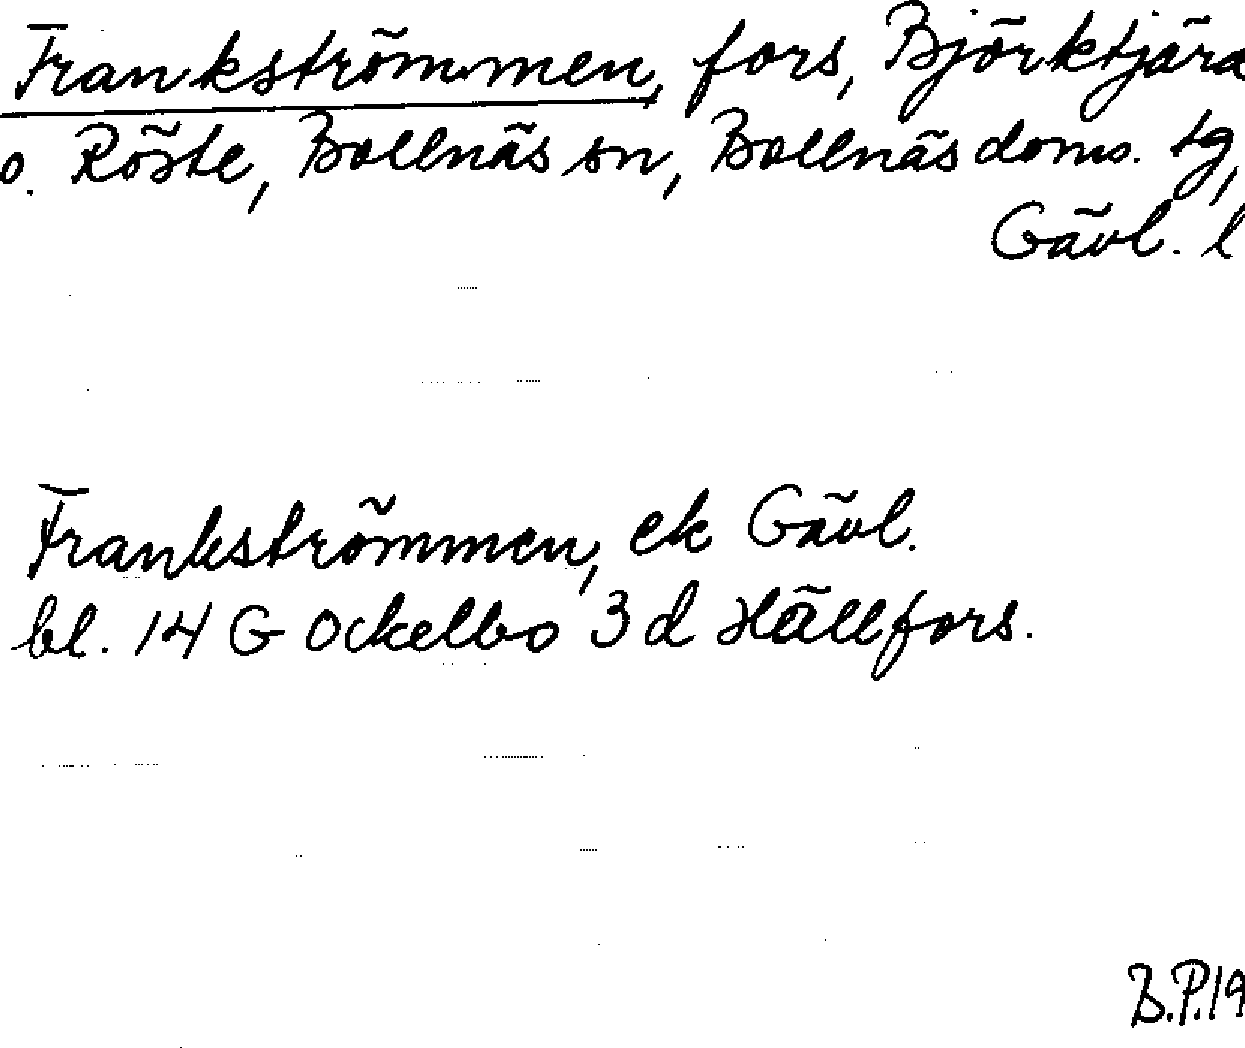 Frankströmmen, fors, Björktjära
o. Röste, Bollnäs sn, Bollnäs doms. tg,
Gävl. l
Frankströmmen, ek Gävl.
bl. 14 G Ockelbo 3 d Hällfors.
B.P.19